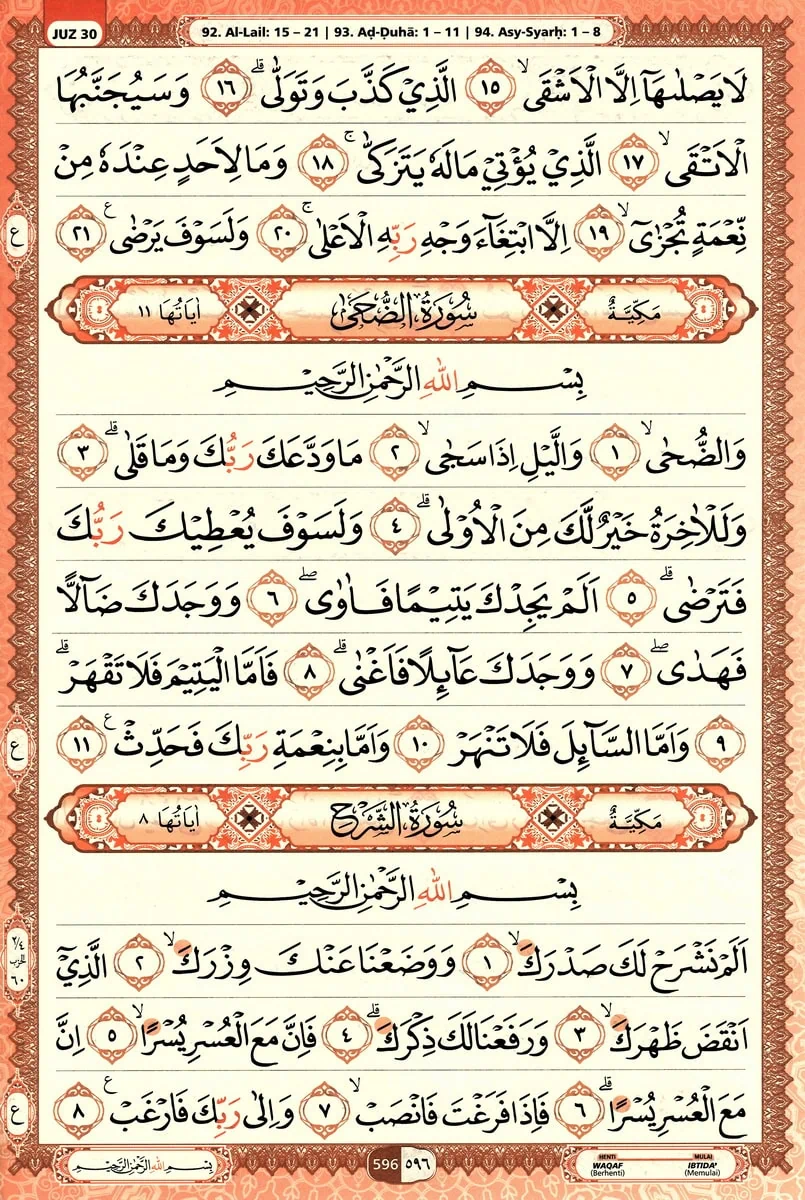 JUZ 30
92. Al-Lail: 15 – 21 | 93. Aḍ-Ḍuḥā: 1 – 11 | 94. Asy-Syarḥ: 1 – 8
لَا يَصْلٰىهَآ اِلَّا الْاَشْقَىۙ ١٥ الَّذِيْ كَذَّبَ وَتَوَلّٰىۗ ١٦ وَسَيُجَنَّبُهَا
الْاَتْقَىۙ ١٧ الَّذِيْ يُؤْتِيْ مَالَهٗ يَتَزَكّٰىۚ ١٨ وَمَا لِاَحَدٍ عِنْدَهٗ مِنْ
نِّعْمَةٍ تُجْزٰىٓۙ ١٩ اِلَّا ابْتِغَاۤءَ وَجْهِ رَبِّهِ الْاَعْلٰىۚ ٢٠ وَلَسَوْفَ يَرْضٰى ࣖ ٢١
ع
مَكِّيَّةٌ سُوْرَةُ الضُّحٰى اٰيَاتُهَا ١١
بِسْمِ اللّٰهِ الرَّحْمٰنِ الرَّحِيْمِ
وَالضُّحٰىۙ ١ وَالَّيْلِ اِذَا سَجٰىۙ ٢ مَا وَدَّعَكَ رَبُّكَ وَمَا قَلٰىۗ ٣
وَلَلْاٰخِرَةُ خَيْرٌ لَّكَ مِنَ الْاُوْلٰىۗ ٤ وَلَسَوْفَ يُعْطِيْكَ رَبُّكَ
فَتَرْضٰىۗ ٥ اَلَمْ يَجِدْكَ يَتِيْمًا فَاٰوٰىۖ ٦ وَوَجَدَكَ ضَاۤلًّا
فَهَدٰىۖ ٧ وَوَجَدَكَ عَاۤىِٕلًا فَاَغْنٰىۗ ٨ فَاَمَّا الْيَتِيْمَ فَلَا تَقْهَرْۗ
٩ وَاَمَّا السَّاۤىِٕلَ فَلَا تَنْهَرْ ١٠ وَاَمَّا بِنِعْمَةِ رَبِّكَ فَحَدِّثْ ࣖ ١١
ع
مَكِّيَّةٌ سُوْرَةُ الشَّرْحِ اٰيَاتُهَا ٨
بِسْمِ اللّٰهِ الرَّحْمٰنِ الرَّحِيْمِ
اَلَمْ نَشْرَحْ لَكَ صَدْرَكَۙ ١ وَوَضَعْنَا عَنْكَ وِزْرَكَۙ ٢ الَّذِيْٓ
٣/٤ الحزب ٦٠
اَنْقَضَ ظَهْرَكَۙ ٣ وَرَفَعْنَا لَكَ ذِكْرَكَۗ ٤ فَاِنَّ مَعَ الْعُسْرِ يُسْرًاۙ ٥ اِنَّ
مَعَ الْعُسْرِ يُسْرًاۗ ٦ فَاِذَا فَرَغْتَ فَانْصَبْۙ ٧ وَاِلٰى رَبِّكَ فَارْغَبْ ࣖ ٨
ع
بِسْمِ اللّٰهِ الرَّحْمٰنِ الرَّحِيْمِ
596 ٥٩٦
HENTI WAQAF (Berhenti)
MULAI IBTIDA' (Memulai)